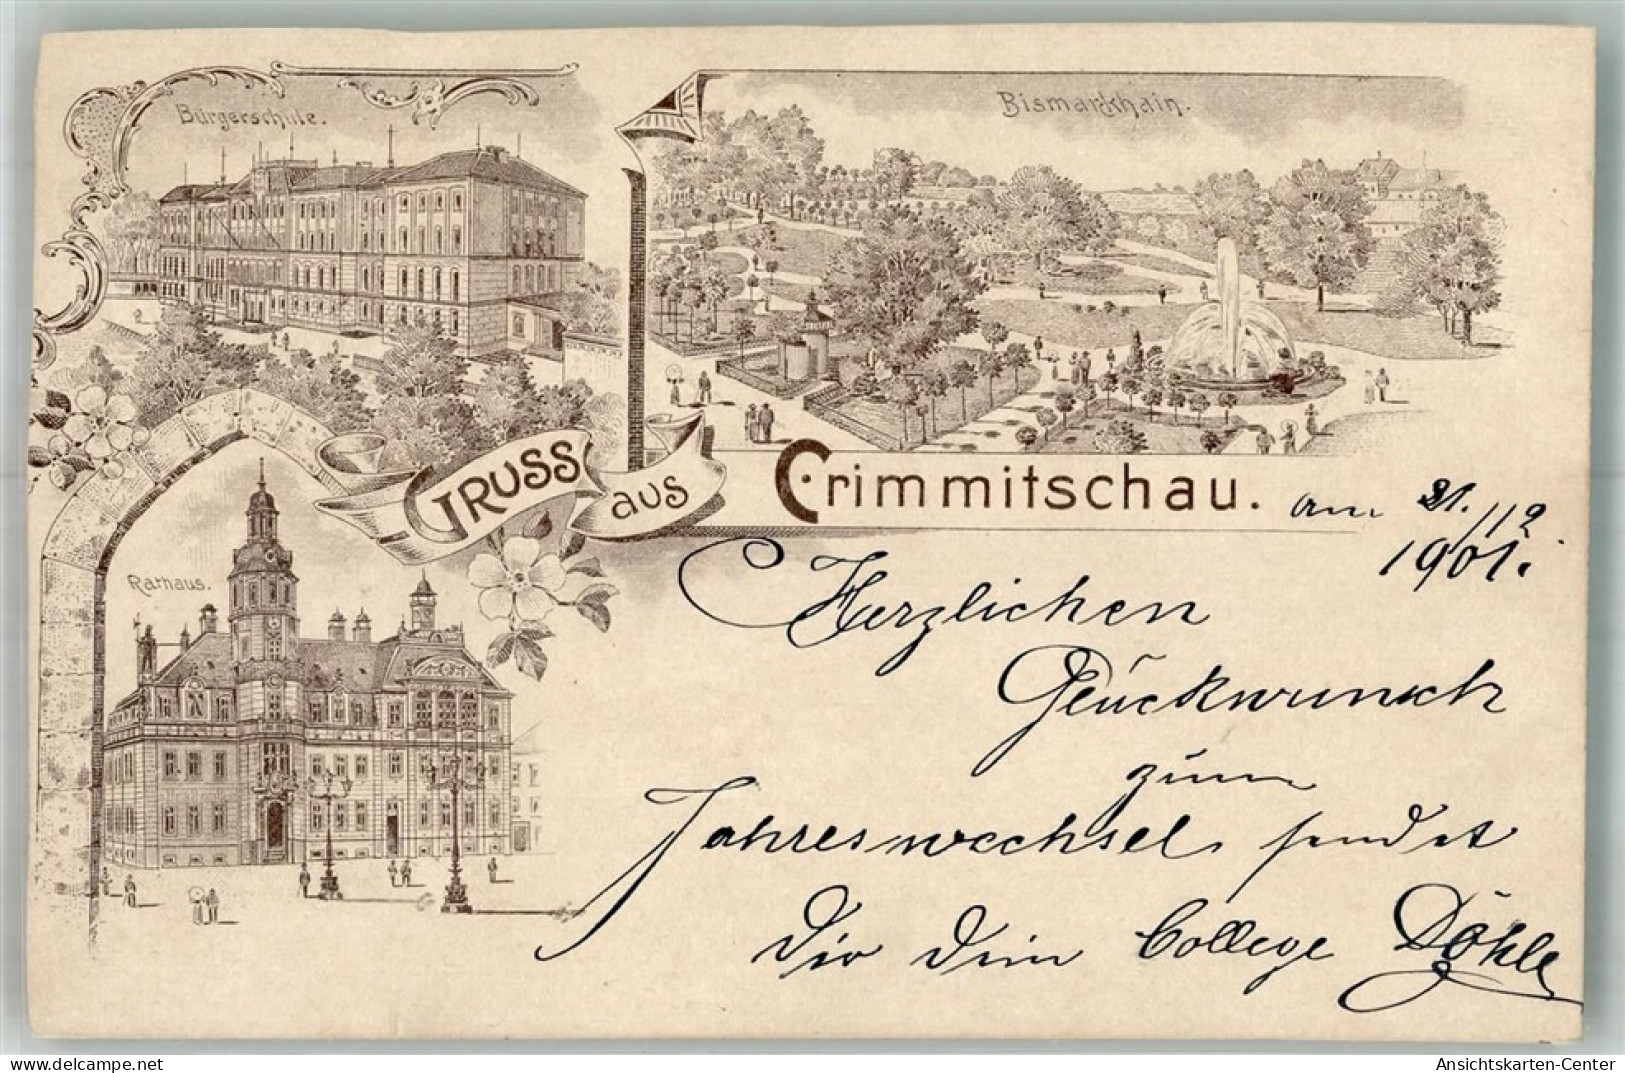 Bürgerschule.
Bismarckhain.
GRUSS
aus
Crimmitschau.
am 31./12
1901.
Rathaus.
Herzlichen
Glückwunsch
zum
Jahreswechsel sendet
Dir Dein College Döhle
www.delcampe.net
Ansichtskarten-Center